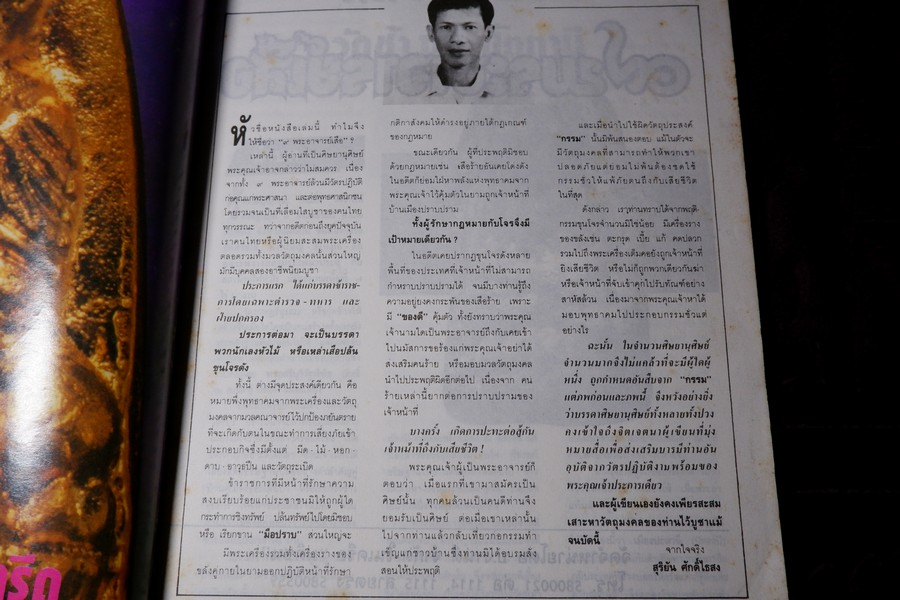 หัวชื่อหนังสือเล่มนี้ ทำไมจึง
ให้ชื่อว่า "๙ พระอาจารย์เสือ" ?
เหล่านี้ ผู้อานที่เป็นศิษยานุศิษย์
พระคุณเจ้าอาจกล่าวว่าไม่สมควร เนื่อง
จากทั้ง ๙ พระอาจารย์ล้วนมีวัตรปฏิบัติ
ก่อคุณแก่พระศาสนา และต่อพุทธศาสนิกชน
โดยรวมจนเป็นที่เลื่อมใสบูชาของคนไทย
ทุกวรรณะ ทว่าจากอดีตก่อนถึงยุคปัจจุบัน
เราคนไทยหรือผู้นิยมสะสมพระเครื่อง
ตลอดรวมทั้งมวลวัตถุมงคลนั้นส่วนใหญ่
มักมีบุคคลสองอาชีพนิยมบูชา
ประการแรก ได้แก่บรรดาข้าราช-
การโดยเฉพาะตำรวจ-ทหาร และ
ฝ่ายปกครอง
ประการต่อมา จะเป็นบรรดา
พวกนักเลงหัวไม้ หรือเหล่าเสือปล้น
ขุนโจรดัง
ทั้งนี้ ต่างมีจุดประสงค์เดียวกัน คือ
หมายพึ่งพุทธาคมจากพระเครื่องและวัตถุ
มงคลจากมวลคณาจารย์ไว้ปกป้องภยันตราย
ที่จะเกิดกับตนในขณะทำการเสี่ยงภัยเข้า
ประกอบกิจซึ่งมีตั้งแต่ มีด-ไม้-หอก-
ดาบ-อาวุธปืน และวัตถุระเบิด
ข้าราชการที่มีหน้าที่รักษาความ
สงบเรียบร้อยแก่ประชาชนมิให้ถูกผู้ใด
กระทำการชิงทรัพย์ ปล้นทรัพย์ไปโดยมิชอบ
หรือ เรียกขาน "มือปราบ" ส่วนใหญ่จะ
มีพระเครื่องรวมทั้งเครื่องรางของ
ขลังคู่กายในยามออกปฏิบัติหน้าที่รักษา
กติกาสังคมให้ดำรงอยู่ภายใต้กฎเกณฑ์
ของกฎหมาย
ขณะเดียวกัน ผู้ที่ประพฤติมิชอบ
ด้วยกฎหมายเช่น เสือร้ายอันเคยโด่งดัง
ในอดีตก็ย่อมใฝ่หาพลังแห่งพุทธาคมจาก
พระคุณเจ้าไว้คุ้มตัวในยามถูกเจ้าหน้าที่
บ้านเมืองปราบปราม
ทั้งผู้รักษากฎหมายกับโจรจึงมี
เป้าหมายเดียวกัน ?
ในอดีตเคยปรากฏขุนโจรดังหลาย
พื้นที่ของประเทศที่เจ้าหน้าที่ไม่สามารถ
กำหราบปราบปรามได้ จนมีบางท่านรู้ถึง
ความอยู่ยงคงกระพันของเสือร้าย เพราะ
มี "ของดี" คุ้มตัว ทั้งยังทราบว่าพระคุณ
เจ้านามใดเป็นพระอาจารย์ถึงกับเคยเข้า
ไปนมัสการขอร้องแก่พระคุณเจ้าอย่าได้
ส่งเสริมคนร้าย หรือมอบมวลวัตถุมงคล
นำไปประพฤติผิดอีกต่อไป เนื่องจาก คน
ร้ายเหล่านี้ยากต่อการปราบปรามของ
เจ้าหน้าที่
บางครั้ง เกิดการปะทะต่อสู้กับ
เจ้าหน้าที่ถึงกับเสียชีวิต !
พระคุณเจ้าผู้เป็นพระอาจารย์ก็
ตอบว่า เมื่อแรกที่เขามาสมัครเป็น
ศิษย์นั้น ทุกคนล้วนเป็นคนดีท่านจึง
ยอมรับเป็นศิษย์ ต่อเมื่อเขาเหล่านั้น
ไปจากท่านแล้วกลับเที่ยวก่อกรรมทำ
เข็ญแก่ชาวบ้านซึ่งท่านมิได้อบรมสั่ง
สอนให้ประพฤติ
และเมื่อนำไปใช้ผิดวัตถุประสงค์
"กรรม" นั้นมีพันสนองตอบ แม้ในตัวจะ
มีวัตถุมงคลที่สามารถทำให้พวกเขา
ปลอดภัยแต่ย่อมไม่พ้นต้องชดใช้
กรรมชั่วให้แพ้ภัยตนถึงกับเสียชีวิต
ในที่สุด
ดังกล่าว เราท่านทราบได้จากพฤติ-
กรรมขุนโจรจำนวนมิใช่น้อย มีเครื่องราง
ของขลังเช่น ตะกรุด เบี้ย แก้ คดปลวก
รวมไปถึงพระเครื่องเต็มคอยังถูกเจ้าหน้าที่
ยิงเสียชีวิต หรือไม่ก็ถูกพวกเดียวกันฆ่า
หรือเจ้าหน้าที่จับเข้าคุกไปรับทัณฑ์อย่าง
สาหัสล้วน เนื่องมาจากพระคุณเจ้าหาได้
มอบพุทธาคมไปประกอบกรรมชั่วแต่
อย่างไร
ฉะนั้น ในจำนวนศิษยานุศิษย์
จำนวนมากจึงไม่แคล้วที่จะมีผู้ใดผู้
หนึ่ง ถูกกำหนดอันสืบจาก "กรรม"
แต่ภพก่อนและภพนี้ จึงหวังอย่างยิ่ง
ว่าบรรดาศิษยานุศิษย์ทั้งหลายทั้งปวง
คงเข้าใจถึงจิตเจตนาผู้เขียนที่มุ่ง
หมายสื่อเพื่อส่งเสริมบารมีท่านอัน
อุบัติจากวัตรปฏิบัติงามพร้อมของ
พระคุณเจ้าประการเดียว
และผู้เขียนเองยังคงเพียรสะสม
เสาะหาวัตถุมงคลของท่านไว้บูชาแม้
จนบัดนี้
จากใจจริง
สุริยัน ศักดิ์ไธสง